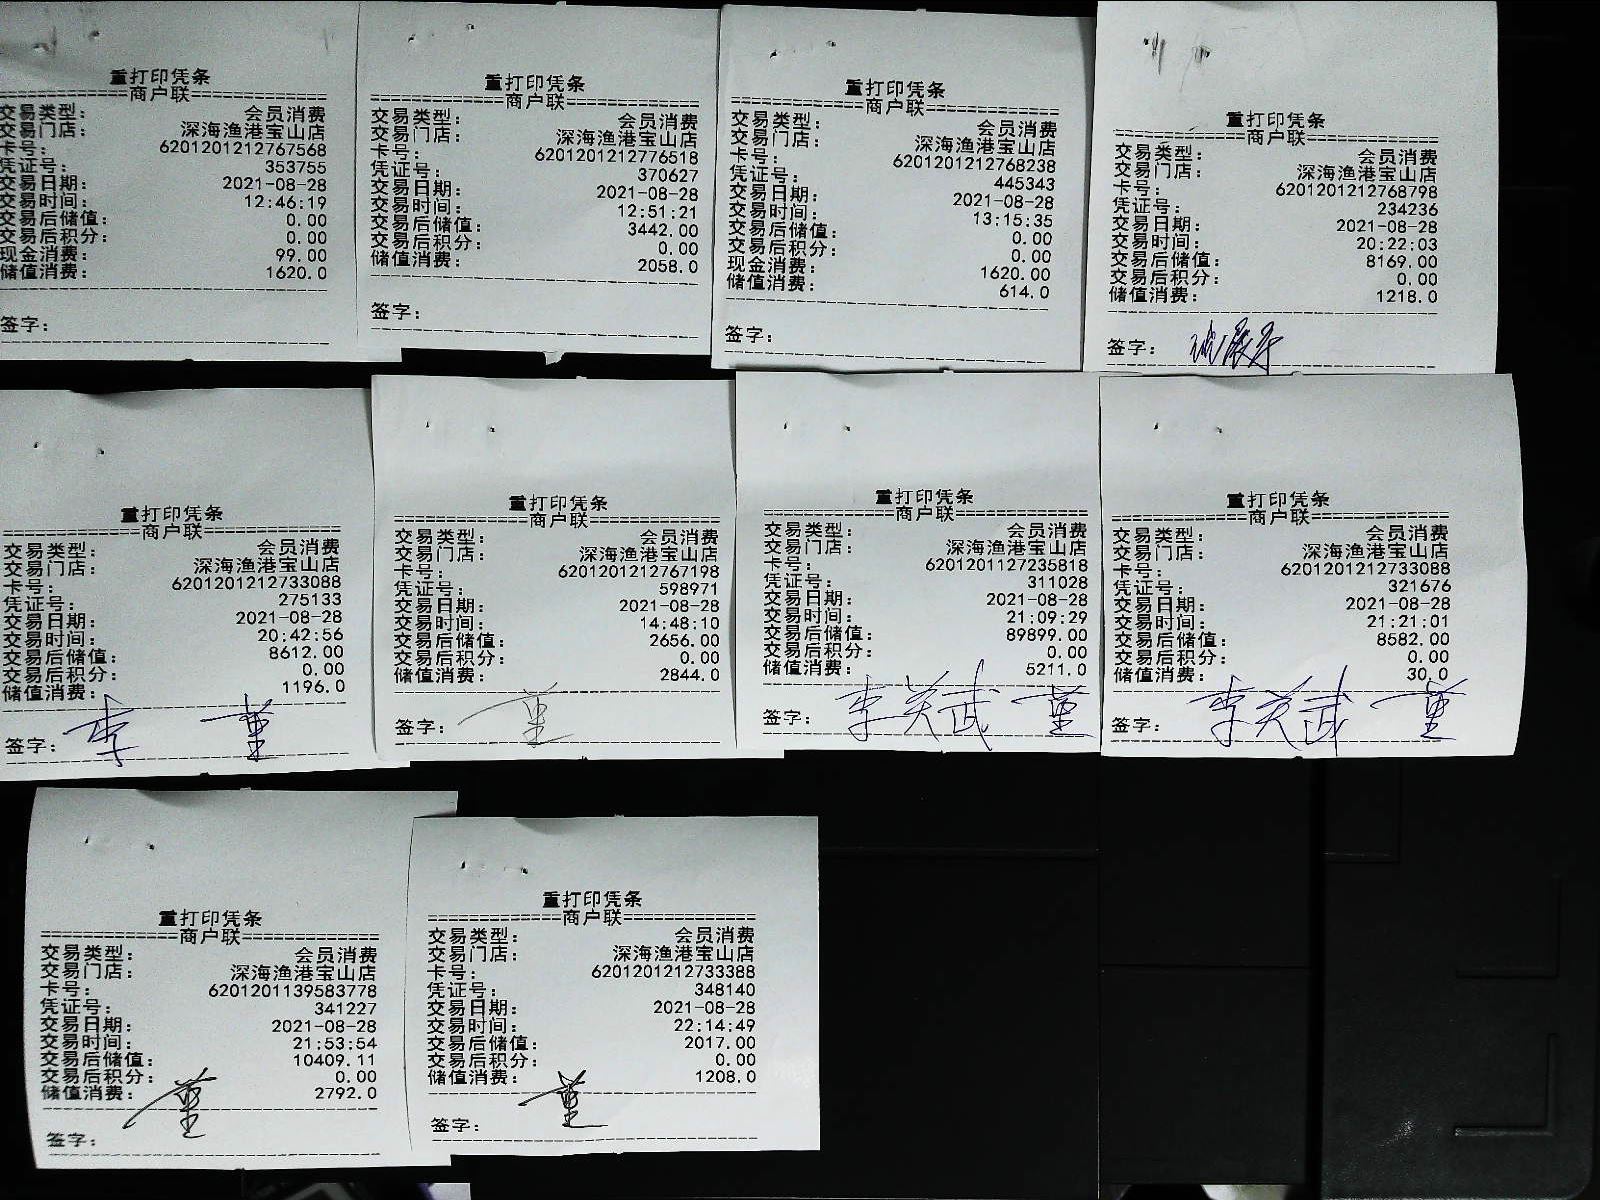 重打印凭条
==============商户联==============
交易类型： 会员消费
交易门店： 深海渔港宝山店
卡号： 6201201212767568
凭证号： 353755
交易日期： 2021-08-28
交易时间： 12:46:19
交易后储值： 0.00
交易后积分： 0.00
现金消费： 99.00
储值消费： 1620.0
签字：
重打印凭条
==============商户联==============
交易类型： 会员消费
交易门店： 深海渔港宝山店
卡号： 6201201212776518
凭证号： 370627
交易日期： 2021-08-28
交易时间： 12:51:21
交易后储值： 3442.00
交易后积分： 0.00
储值消费： 2058.0
签字：
重打印凭条
==============商户联==============
交易类型： 会员消费
交易门店： 深海渔港宝山店
卡号： 6201201212768238
凭证号： 445343
交易日期： 2021-08-28
交易时间： 13:15:35
交易后储值： 0.00
交易后积分： 0.00
现金消费： 1620.00
储值消费： 614.0
签字：
重打印凭条
==============商户联==============
交易类型： 会员消费
交易门店： 深海渔港宝山店
卡号： 6201201212768798
凭证号： 234236
交易日期： 2021-08-28
交易时间： 20:22:03
交易后储值： 8169.00
交易后积分： 0.00
储值消费： 1218.0
签字：
重打印凭条
==============商户联==============
交易类型： 会员消费
交易门店： 深海渔港宝山店
卡号： 6201201212733088
凭证号： 275133
交易日期： 2021-08-28
交易时间： 20:42:56
交易后储值： 8612.00
交易后积分： 0.00
储值消费： 1196.0
签字： 李 董
重打印凭条
==============商户联==============
交易类型： 会员消费
交易门店： 深海渔港宝山店
卡号： 6201201212767198
凭证号： 598971
交易日期： 2021-08-28
交易时间： 14:48:10
交易后储值： 2656.00
交易后积分： 0.00
储值消费： 2844.0
签字： 董
重打印凭条
==============商户联==============
交易类型： 会员消费
交易门店： 深海渔港宝山店
卡号： 6201201127235818
凭证号： 311028
交易日期： 2021-08-28
交易时间： 21:09:29
交易后储值： 89899.00
交易后积分： 0.00
储值消费： 5211.0
签字： 李关武 董
重打印凭条
==============商户联==============
交易类型： 会员消费
交易门店： 深海渔港宝山店
卡号： 6201201212733088
凭证号： 321676
交易日期： 2021-08-28
交易时间： 21:21:01
交易后储值： 8582.00
交易后积分： 0.00
储值消费： 30.0
签字： 李关武 董
重打印凭条
==============商户联==============
交易类型： 会员消费
交易门店： 深海渔港宝山店
卡号： 6201201139583778
凭证号： 341227
交易日期： 2021-08-28
交易时间： 21:53:54
交易后储值： 10409.11
交易后积分： 0.00
储值消费： 2792.0
签字： 董
重打印凭条
==============商户联==============
交易类型： 会员消费
交易门店： 深海渔港宝山店
卡号： 6201201212733388
凭证号： 348140
交易日期： 2021-08-28
交易时间： 22:14:49
交易后储值： 2017.00
交易后积分： 0.00
储值消费： 1208.0
签字： 董